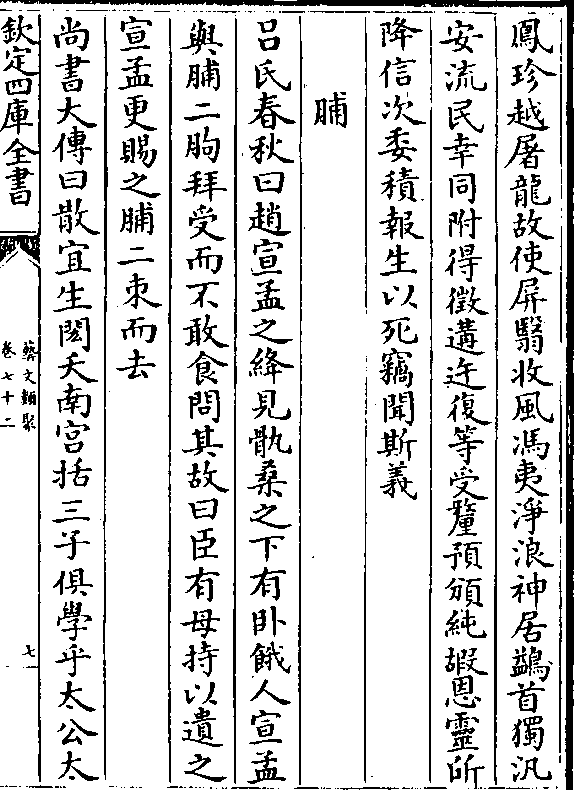 鳳珍越屠龍故使屏翳收風馮夷淨浪神居鷁首獨汎
安流民幸同附得徵遘迕復等受釐預頒純嘏恩靈所
降信次委積報生以死竊聞斯義
脯
吕氏春秋曰趙宣孟之絳見骫桑之下有卧餓人宣孟
與脯二朐拜受而不敢食問其故曰臣有母持以遺之
宣孟更賜之脯二朿而去
尚書大傳曰散宜生閎夭南宫括三子俱學乎太公太
欽定四庫全書
藝文類聚
卷七十二
七